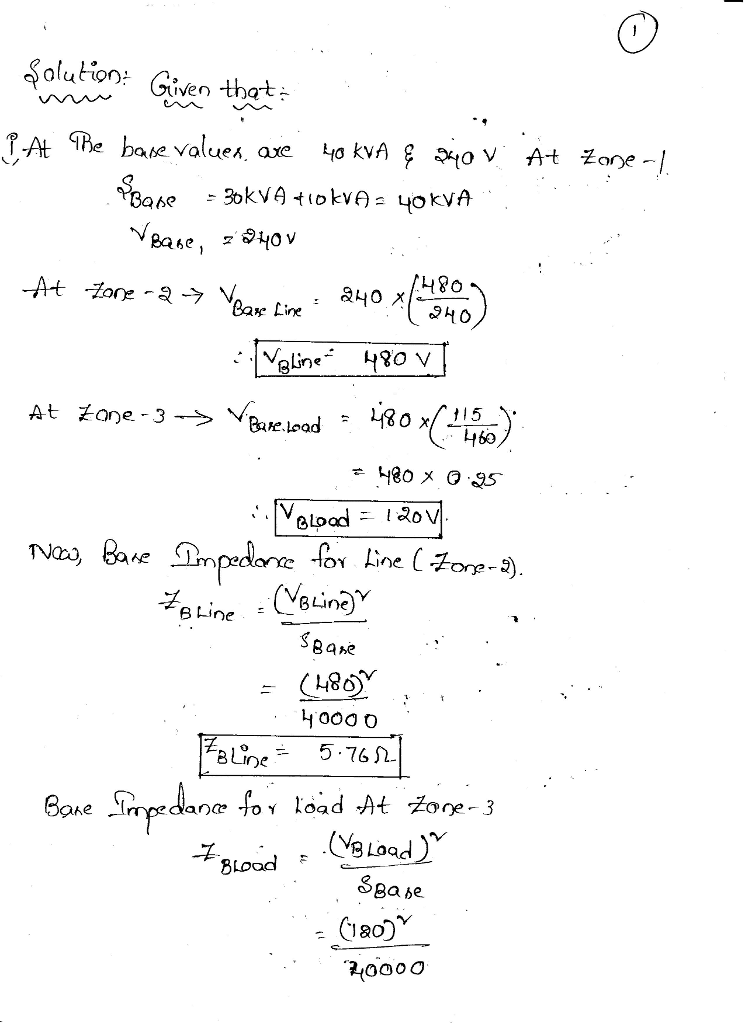 1
Solution:- Given that:-
i, At The base values are 40 kVA & 240 V At Zone-1.
SBase = 30kVA + 10kVA = 40KVA
VBase, = 240v
At Zone-2 → VBase Line = 240 × (480/240)
∴ VBLine = 480 V
At Zone-3 → VBase.Load = 480 × (115/460)
= 480 × 0.25
∴ VBLoad = 120V.
Now, Base Impedance for Line (Zone-2).
ZBLine = (VBLine)²/SBase
= (480)²/40000
ZBLine = 5.76Ω
Base Impedance for Load At Zone-3
ZBLoad = (VBLoad)²/SBase
= (120)²/40000